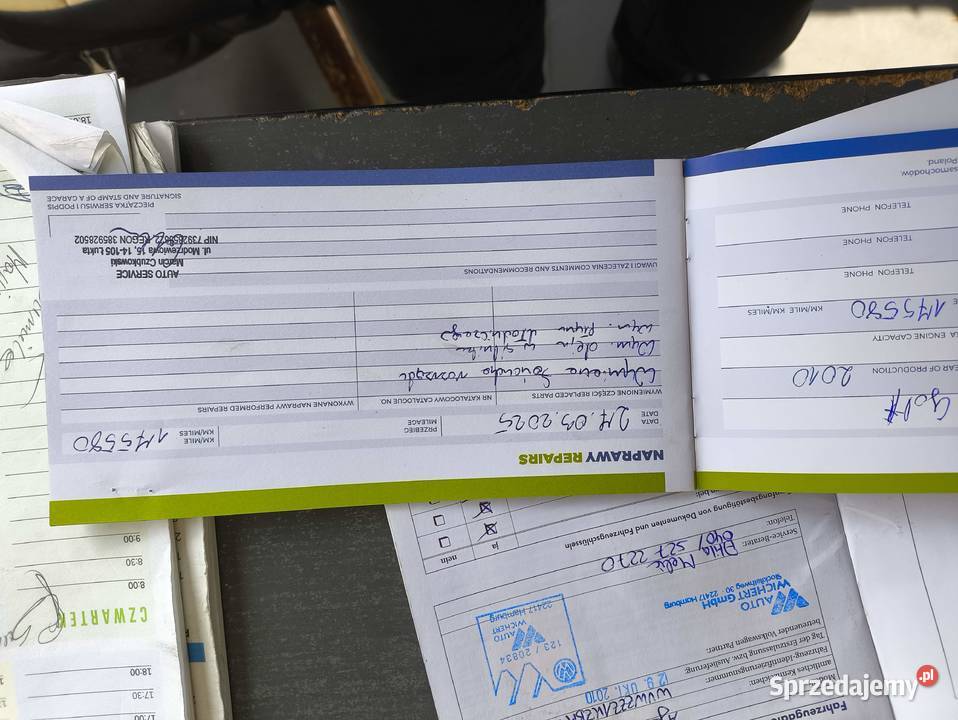 NAPRAWY REPAIRS
DATA
DATE
27.03.2025
PRZEBIEG
MILEAGE
KM/MILE
KM/MILES
175580
WYMIENIONE CZĘŚCI REPLACED PARTS
NR KATALOGOWY CATALOGUE NO.
WYKONANE NAPRAWY PERFORMED REPAIRS
Wymiana łańcucha rozrządu
Wym. oleju w silniku
Wym. płynu chłodniczego
UWAGI I ZALECENIA COMMENTS AND RECOMMENDATIONS
AUTO SERVICE
Marcin Czubkowski
ul. Modrzewiowa 15, 14-105 Łukta
REGON 385928502
PIECZĄTKA SERWISU I PODPIS
SIGNATURE AND STAMP OF A GARAGE
Golf
YEAR OF PRODUCTION
2010
ENGINE CAPACITY
175580
KM/MILE KM/MILES
TELEFON PHONE
TELEFON PHONE
TELEFON PHONE
samochodów.
Poland.
Kennzeichen:
Fahrzeug-Identifizierungsnummer
Tag der Erstzulassung bzw. Auslieferung:
29. Okt. 2010
betreuender Volkswagen Partner:
AUTO
WICHERT GmbH
22417 Hamburg
123 / 20834
AUTO
WICHERT
22417 Hamburg
Service-Berater:
Telefon:
040/ 527 2270
Empfangsbestätigung von Dokumenten und Fahrzeugschlüsseln
ja
nein
CZWARTEK
8:00
8:30
9:00
17:00
17:30
18:00
Sprzedajemy.pl